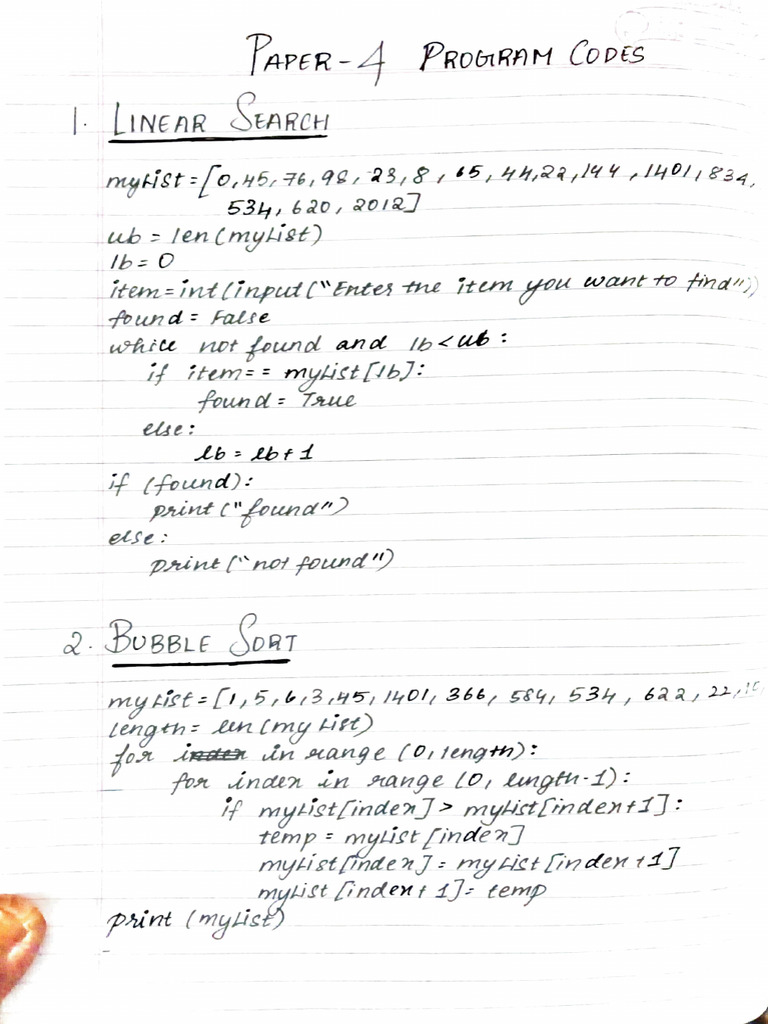 PAPER-4 PROGRAM CODES
1. LINEAR SEARCH
myList=[0,45,76,98,23,8,65,44,22,144,1401,834,
534,620,2012]
ub = len(myList)
lb = 0
item=int(input("Enter the item you want to find"))
found = False
while not found and lb<ub:
if item== myList[lb]:
found = True
else:
lb = lb+1
if (found):
print("found")
else:
print("not found")
2. BUBBLE SORT
myList=[1,5,6,3,45,1401,366, 584, 534, 622, 22,
length= len(myList)
for i in range (0,length):
for index in range (0, length-1):
if myList[index] > myList[index+1]:
temp = myList[index]
myList[index] = myList[index+1]
myList[index+1]= temp
print (myList)